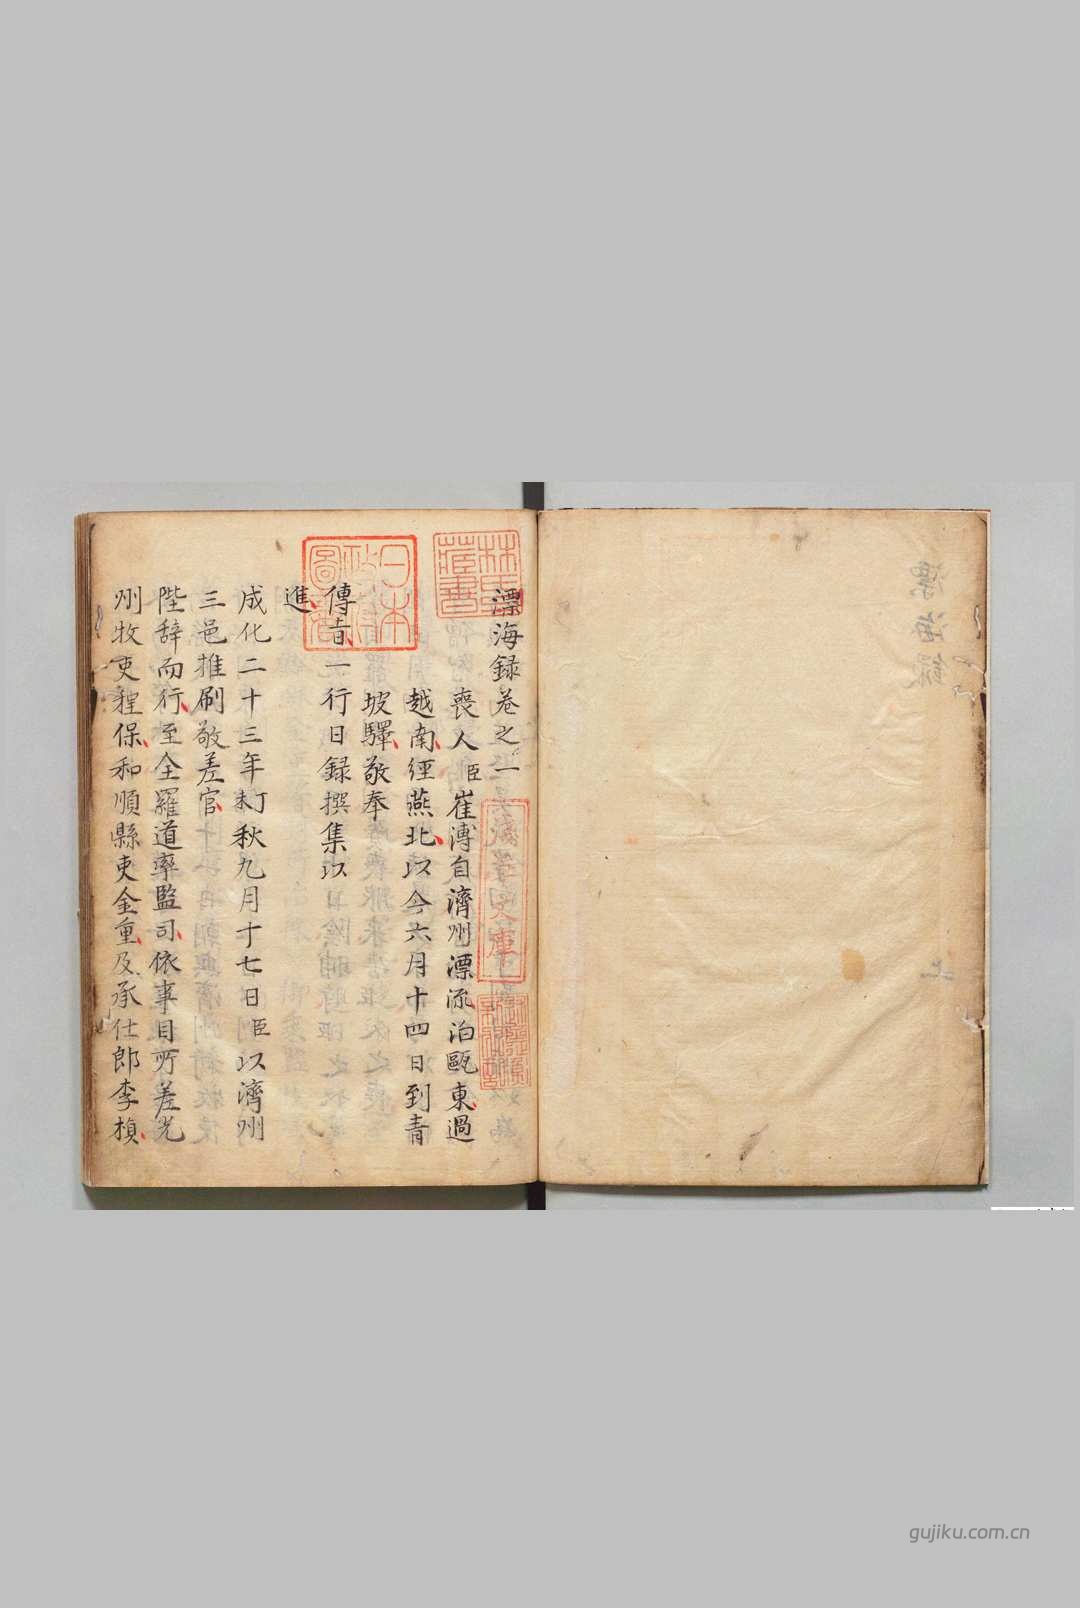 漂海録
上
漂海録卷之一
喪人臣崔溥自濟州漂流泊甌東過
越南經燕北以今六月十四日到青
坡驛敬奉
傳旨一行日録撰集以
進
成化二十三年丁未秋九月十七日臣以濟州
三邑推刷敬差官
陛辞而行至全羅道率監司依事目所差光
州牧吏程保和順縣吏金重及承仕郎李楨
林氏藏書
日本政府圖書
淺草文庫
gujiku.com.cn